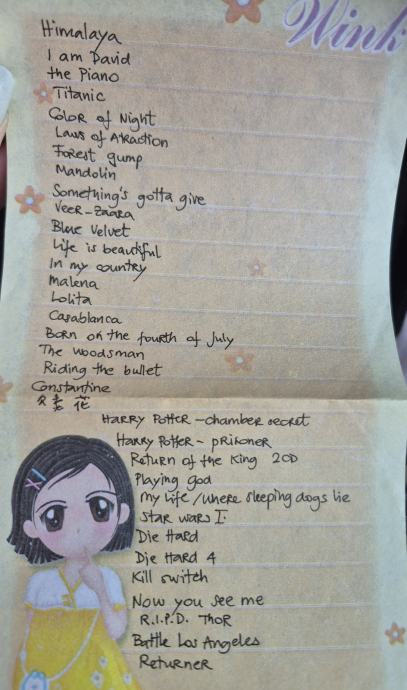 Wink
Himalaya
I am David
the Piano
Titanic
Color of Night
Laws of Attraction
Forest gump
Mandolin
Something's gotta give
Veer-Zaara
Blue Velvet
Life is beautiful
In my country
Malena
Lolita
Casablanca
Born on the fourth of July
The woodsman
Riding the bullet
Constantine
花
Harry Potter - chamber secret
Harry Potter - prisoner
Return of the King 2CD
Playing god
My life / where sleeping dogs lie
Star wars I
Die Hard
Die Hard 4
Kill switch
Now you see me
R.I.P.D. Thor
Battle Los Angeles
Returner